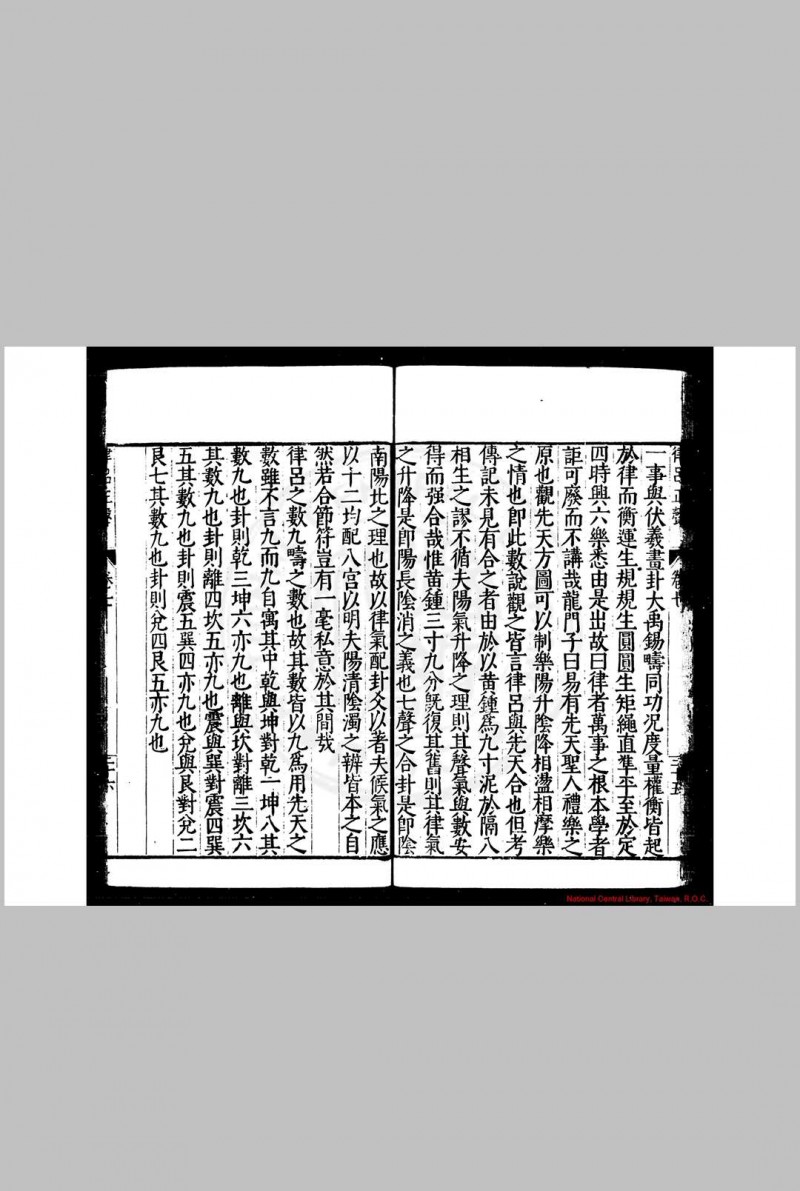 一事與伏羲畫卦大禹錫疇同功況度量權衡皆起
於律而衡運生規規生圓圓生矩繩直準平至於定
四時興六樂悉由是出故曰律者萬事之根本學者
詎可廢而不講哉龍門子曰易有先天聖人禮樂之
原也觀先天方圖可以制樂陽升陰降相盪相摩樂
之情也即此數說觀之皆言律呂與先天合也但考
傳記未見有合之者由於以黃鍾爲九寸泥於隔八
相生之謬不循夫陽氣升降之理則其聲氣與數安
得而强合哉惟黃鍾三寸九分既復其舊則其律氣
之升降是即陽長陰消之義也七聲之合卦是即陰
律呂正聲
卷七
三十五
南陽北之理也故以律氣配卦爻以者夫候氣之應
以十二均配八宮以明夫陽清陰濁之辨皆本之自
然若合節符豈有一毫私意於其間哉
律呂之數九疇之數也故其數皆以九爲用先天之
數雖不言九而九自寓其中乾與坤對乾一坤八其
數九也卦則乾三坤六亦九也離與坎對離三坎六
其數九也卦則離四坎五亦九也震與巽對震四巽
五其數九也卦則震五巽四亦九也兌與艮對兌二
艮七其數九也卦則兌四艮五亦九也
律呂正聲
卷七
三十六
National Central Library, Taiwan, R.O.C.